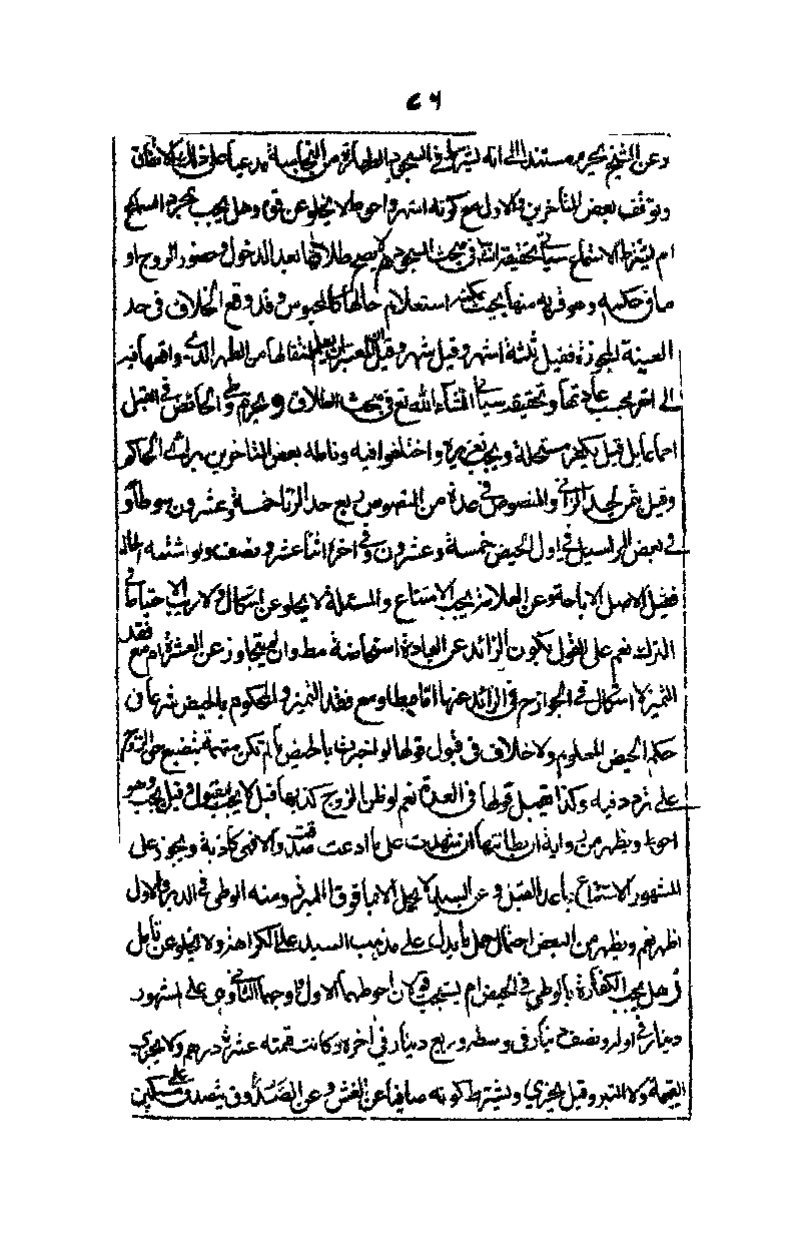 ٢٦
وعن الشيخ يحرم مستندا الى انه يشترط في السجود الطهارة من النجاسة مدعيا على ذلك الاتفاق
وتوقف بعض المتأخرين في الاول مع كونه اشهر واحوط لا يخلو عن قوة وهل يجب بمجرد السماع
ام يشترط الاستماع سيأتي تحقيقه انشا في مبحث السجود ولا يصح طلاقها بعد الدخول وحضور الزوج او
ما في حكمه وهو قربه منها بحيث يمكنه استعلام حالها كالمحبوس وقد وقع الخلاف في حد
الغيبة المجوزة فقيل ثلثة اشهر وقيل شهر وقيل المعتبر ان يعلم انتقالها من الطهر الذي واقعها فيه
الى اخر بحسب عادتها وتحقيقه سيأتي انشاء الله تع في مبحث الطلاق ويحرم وطي الحائض في القبل
اجماعا بل قيل بكفر مستحله ويجب تعزيره واختلفوا فيه وناطه بعض المتأخرين براي الحاكم
وقيل ثمن لحد الزاني والمنصوص في عدة من النصوص ربع حد الزنا خمسة وعشرون سوطا و
في بعض المراسيل في اول الحيض خمسة وعشرون وفي اخره اثنا عشر ونصف ولو اشتبه الحال
فقيل الاصل الاباحة وعن العلامة يجب الامتناع والمسئلة لا يخلو عن اشكال ولا ريب الاحتياط في
الترك نعم على القول بكون الزائد عن العادة استحاضة مط وان لم يتجاوز عن العشرة ام مع فقد
التميز لا اشكال في الجواز في الزائد عنها اما مطا ومع فقد التميز والمحكوم بالحيض شرعا في
حكم الحيض المعلوم ولا خلاف في قبول قولها لو اخبرت بالحيض ما لم تكن متهمة بتضييع حق الزوج
على تردد فيه وكذا يقبل قولها في العدة نعم لو ظن الزوج كذبها قيل لا يجب القبول وقيل يجب وهو
احوط ويظهر من رواية ان بطانتها ان شهدت على ما ادعت صدقت والا فهي كاذبة ويجوز على
المشهور الاستمتاع بما عدا القبل وعن السيد لا يحل الا بما فوق الميزر ومنه الوطي في الدبر والاول
اظهر نعم ويظهر من البعض احتمال حمل ما يدل على مذهب السيد على الكراهة ولا يخلو عن تأمل
وهل يجب الكفارة بالوطي في الحيض ام يستحب قولان احوطهما الاول واوجهها الثاني وهي على اشهور
دينار في اوله ونصف دينار في وسطه وربع دينار في اخره وكانت قيمته عشرة درهم ولا يجزي
القيمة ولا التبر وقيل يجزي ويشترط كونه صافيا عن الغش وعن الصدوق يتصدق على مسكين